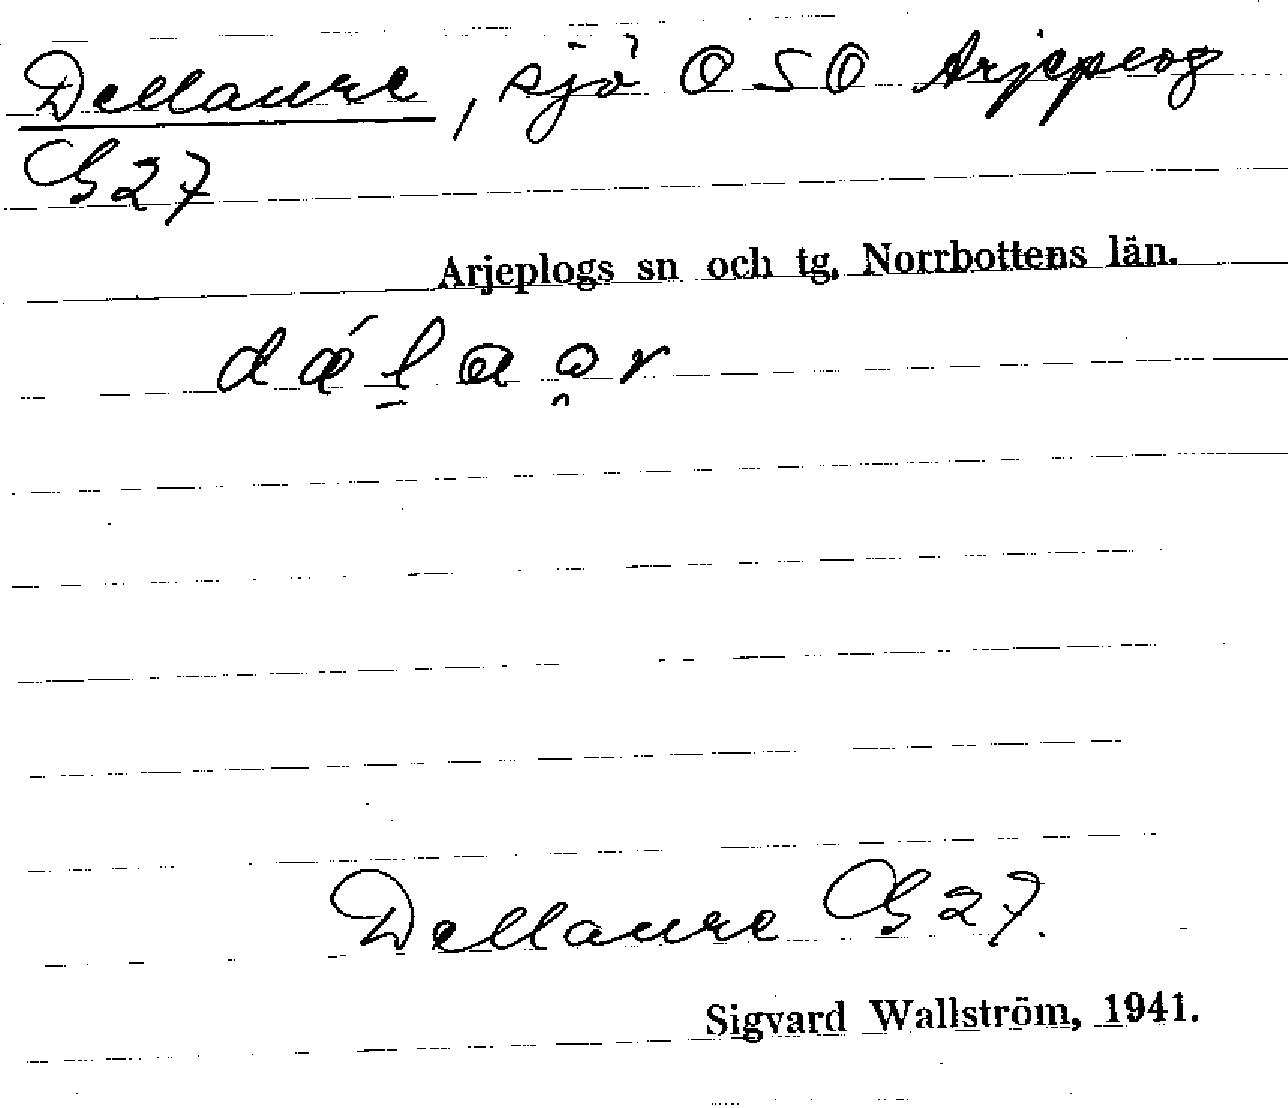 Dellaure, sjö OSO Arjeplog
G27
Arjeplogs sn och tg, Norrbottens län.
Dellaure G27.
Sigvard Wallström, 1941.